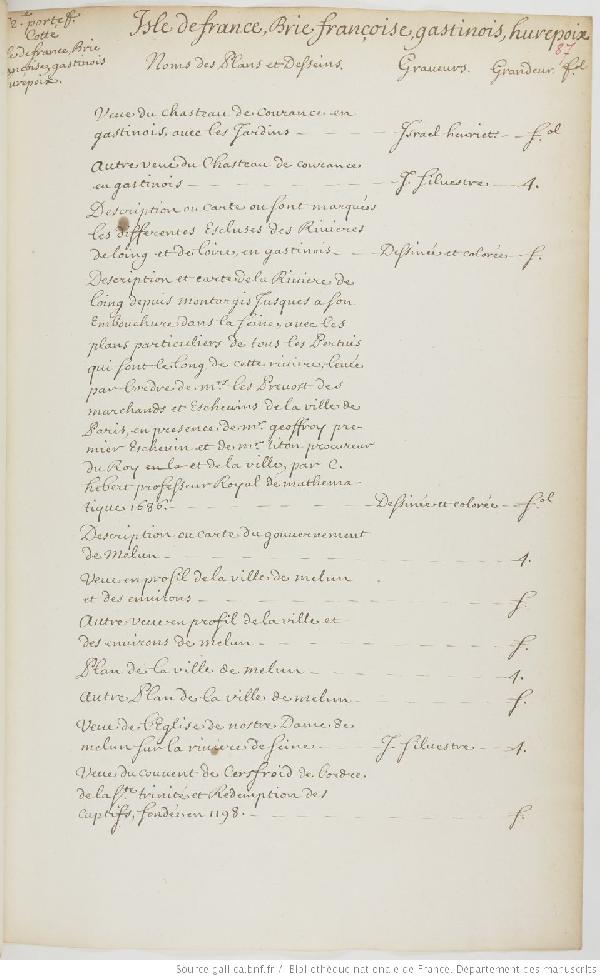 porteff.
Cotte
de france, Brie
françoise, gastinois
hurepoix.
Isle de france, Brie françoise, gastinois, hurepoix
87
Noms des Plans et Desseins. Graveurs. Grandeur. fol
Veue du chasteau de Courance en
gastinois, avec les Jardins — Israel henriet. — f.ol
Autre veue du Chasteau de courance
en gastinois — J. silvestre — 4.
Description ou carte ou sont marquées
les differentes Escluses des Rivieres
de loing et de loire, en gastinois — Dessinée et colorée — f.
Description et carte de la Riviere de
loing depuis montargis Jusques a son
Embouchure dans la seine, avec les
plans particuliers de tous les Pertuis
qui sont le long de cette riviere, levée
par l'ordre de mrs les Prevost des
marchands et Eschevins de la ville de
Paris, en presence de mr. geoffroy pre-
mier Eschevin et de mr. titon procureur
du Roy en la et de la ville, par C.
hebert professeur Royal de mathema-
tique 1686. — Dessinée et colorée — f.ol
Description ou carte du gouvernement
de Melun — 4.
Veue en profil de la ville de melun
et des environs — f.
Autre veue en profil de la ville et
des environs de melun — f.
Plan de la ville de melun — 4.
Autre Plan de la ville de melun — f.
Veue de l'Eglise de nostre Dame de
melun sur la riviere de seine — J. silvestre — 4.
Veue du couvent de Cersfroid de l'ordre
de la ste trinité et Redemption des
captifs, fondé en 1198. — f.
Source gallica.bnf.fr / Bibliothèque nationale de France. Département des manuscrits